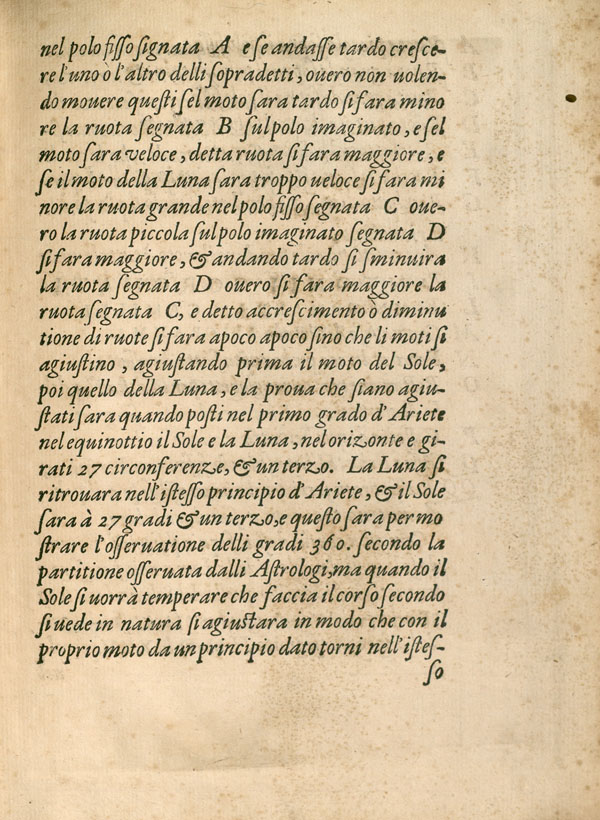 nel polo fisso signata A e se andasse tardo cresce-
re l'uno ò l'altro delli sopradetti, ouero non uolen-
do mouere questi sel moto sara tardo si fara mino
re la ruota segnata B sul polo imaginato, e sel
moto sara veloce, detta ruota si fara maggiore, e
se il moto della Luna sara troppo ueloce si fara mi
nore la ruota grande nel polo fisso segnata C oue-
ro la ruota piccola sul polo imaginato segnata D
si fara maggiore, & andando tardo si sminuira
la ruota segnata D ouero si fara maggiore la
ruota segnata C, e detto accrescimento ò diminu
tione di ruote si fara apoco apoco sino che li moti si
agiustino, agiustando prima il moto del Sole,
poi quello della Luna, e la proua che siano agiu-
stati sara quando posti nel primo grado d'Ariete
nel equinottio il Sole e la Luna, nel orizonte e gi-
rati 27 circonferenze, & un terzo. La Luna si
ritrouara nell'istesso principio d'Ariete, & il Sole
sara à 27 gradi & un terzo, e questo sara per mo
strare l'osseruatione delli gradi 360. secondo la
partitione osseruata dalli Astrologi, ma quando il
Sole si uorrà temperare che faccia il corso secondo
si uede in natura si agiustara in modo che con il
proprio moto da un principio dato torni nell'istes-
so